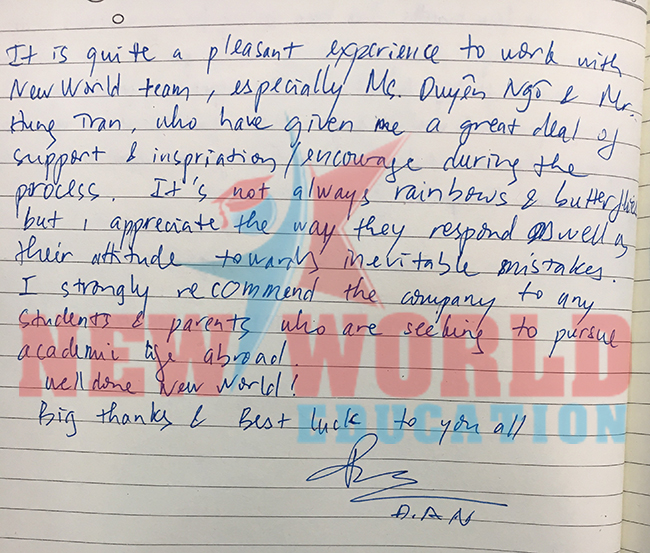 It is quite a pleasant experience to work with
New World team, especially Ms. Duyên Ngô & Mr.
Hung Tran, who have given me a great deal of
support & inspriation/encourage during the
process. It's not always rainbows & butterflies
but i appreciate the way they respond as well as
their attitude towards inevitable mistakes.
I strongly recommend the company to any
students & parents who are seeking to pursue
academic life abroad.
Well done New World!
Big thanks & Best luck to you all
D.AN
NEW WORLD
EDUCATION